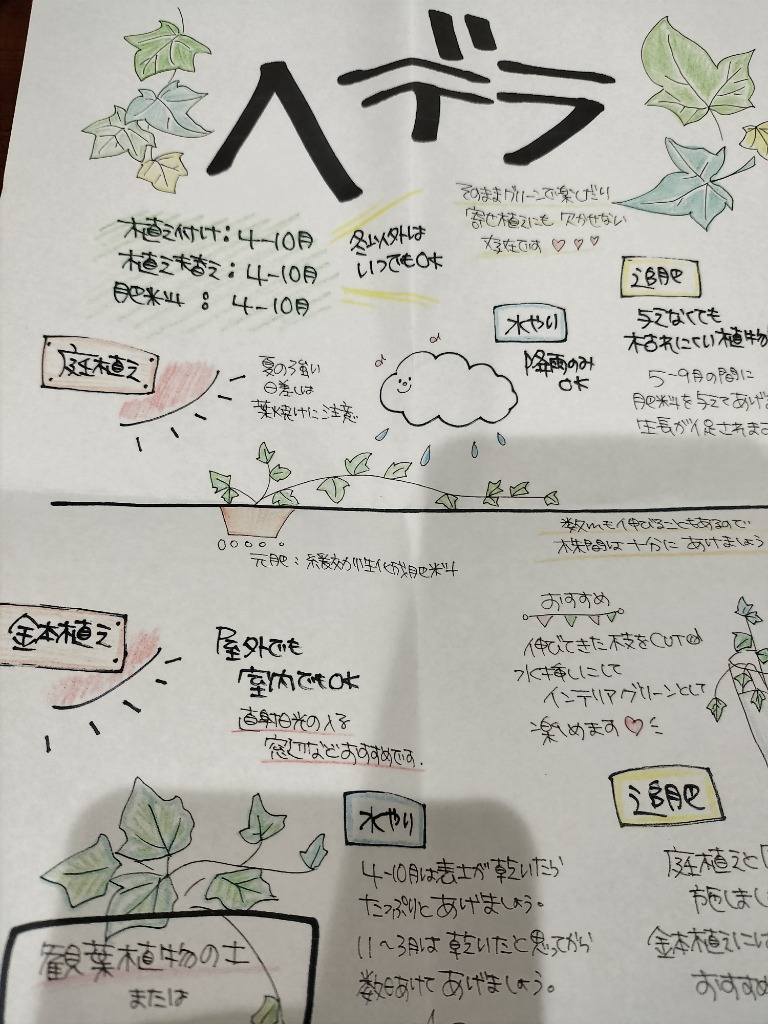 ヘデラ
そのままグリーンで楽しだり
寄せ植えにも欠かせない
存在です♡♡♡
植え付け：4-10月
植え替え：4-10月
肥料：4-10月
冬以外は
いつでもOK
庭植え
夏の強い
日差しは
葉焼けに注意
水やり
降雨のみ
OK
追肥
与えなくても
枯れにくい植物
5～9月の間に
肥料を与えてあげ
生長が促されます
元肥：緩効性化成肥料
数mも伸びることもあるので
株間は十分にあけましょう
鉢植え
屋外でも
室内でもOK
直射日光の入る
窓辺などおすすめです.
おすすめ
伸びてきた枝をCUT
水挿しにして
インテリアグリーンとして
楽しめます♡
水やり
4-10月は表土が乾いたら
たっぷりとあげましょう。
11～3月は乾いたと思ってから
数日あけてあげましょう。
追肥
庭植えと
施しまし
鉢植えには
おすすめ
観葉植物の土
または